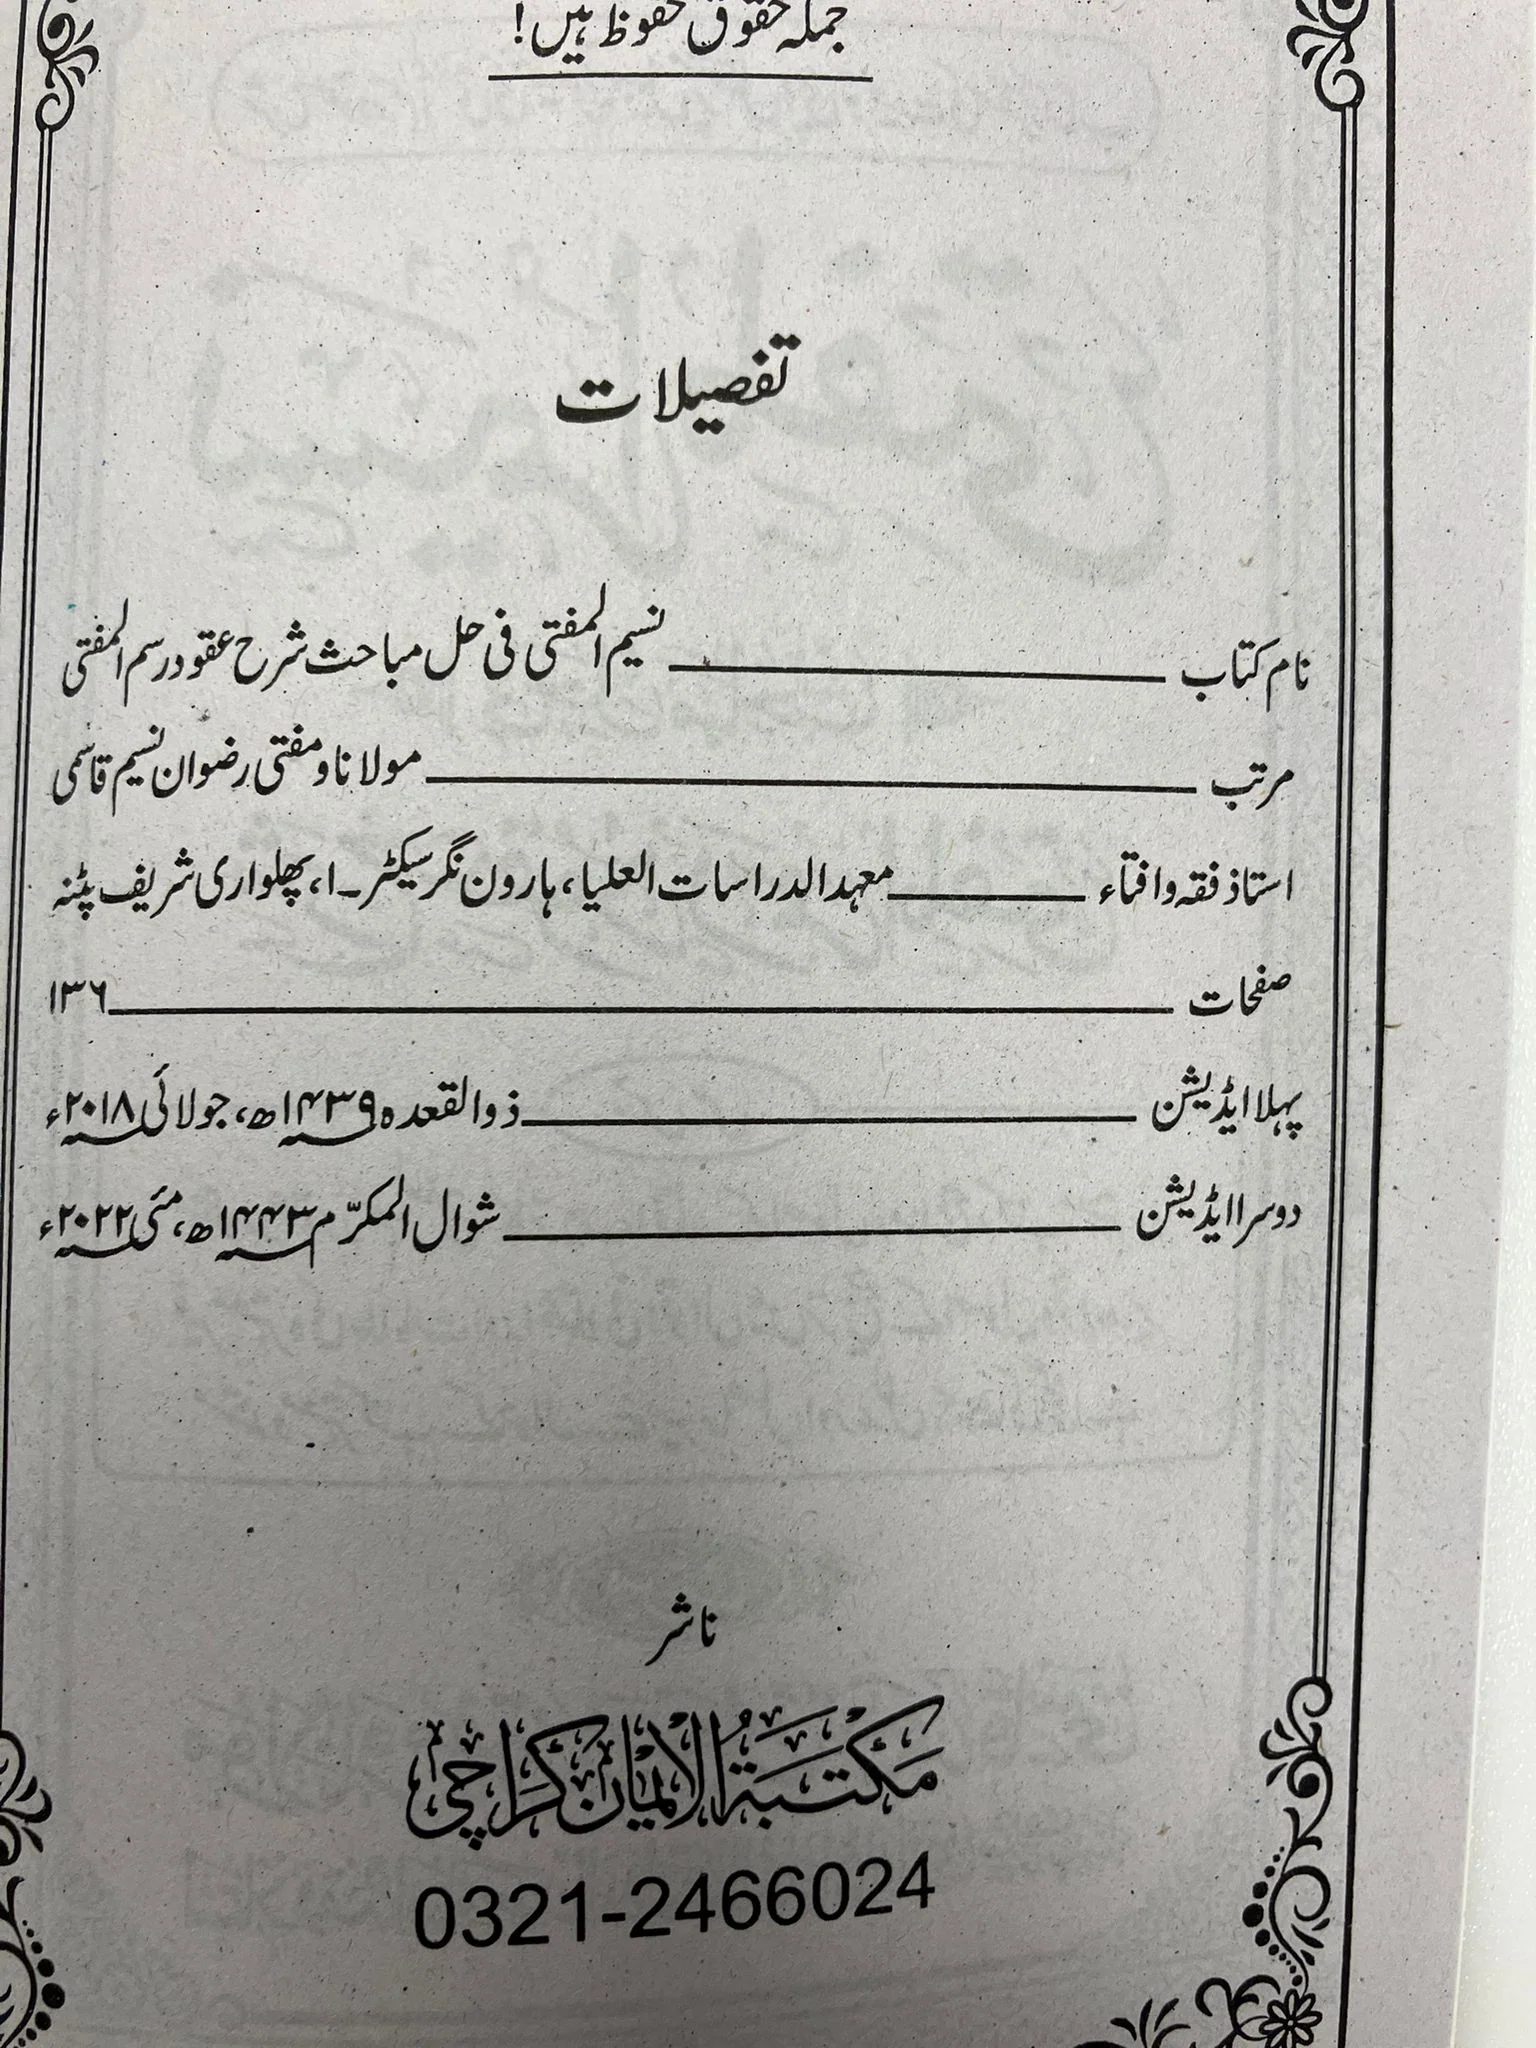 جملہ حقوق محفوظ ہیں!
تفصیلات
نام کتاب ـــــ نسیم المفتی فی حل مباحث شرح عقود رسم المفتی
مرتب ـــــ مولانا و مفتی رضوان نسیم قاسمی
استاذ فقہ و افتاء ـــــ معہد الدراسات العلیا، ہارون نگر سیکٹر۔۱، پھلواری شریف پٹنہ
صفحات ـــــ ۱۳۶
پہلا ایڈیشن ـــــ ذوالقعدہ ۱۴۳۹ھ، جولائی ۲۰۱۸ء
دوسرا ایڈیشن ـــــ شوال المکرّم ۱۴۴۳ھ، مئی ۲۰۲۲ء
ناشر
مکتبۃ الایمان کراچی
0321-2466024